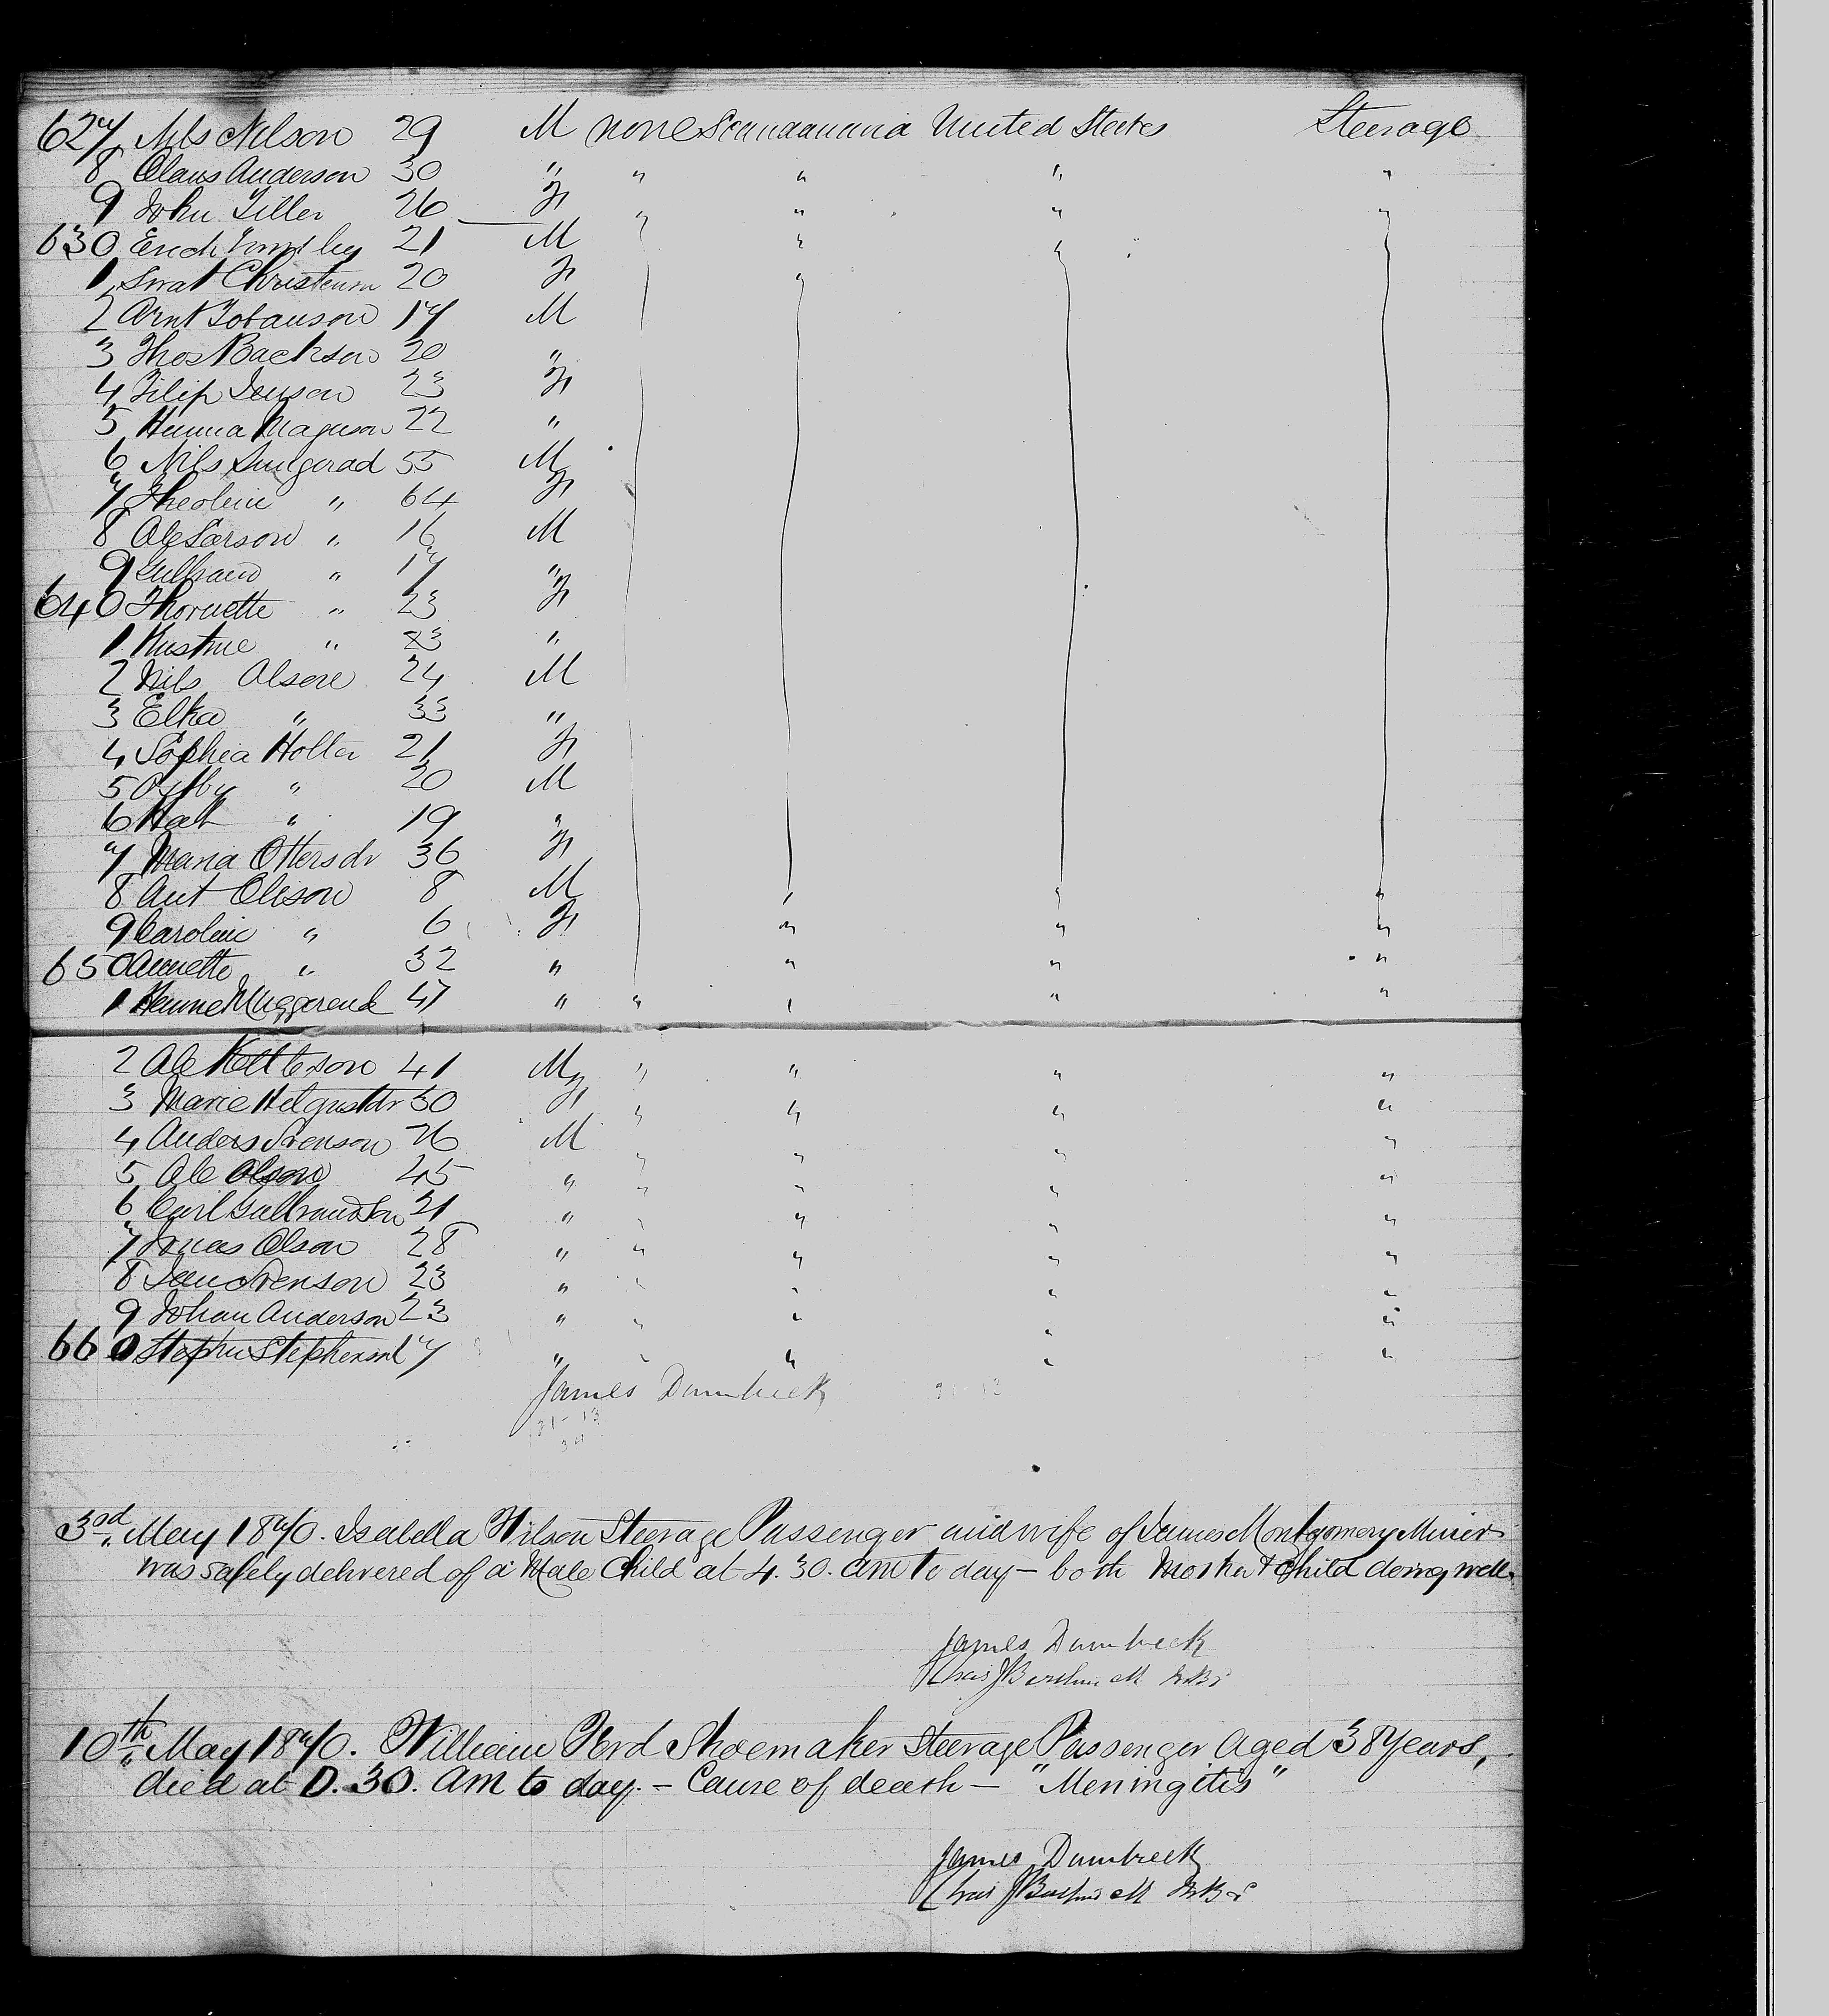 627 Nils Nilson 29 M none Scandanavia United States Steerage
8 Claus Anderson 30 " " " " "
9 John Tiller 26 F " " " "
630 Erich 21 M " "
1 Christenson 20 F "
2 Arnt Johanson 17 M
3 Thos Backson 20 "
4 Filip Jenson 23 F
5 Hanna Maguson 22 "
6 Nils Lungerad 55 M
7 Theoline " 64 F
8 Ole Larson " 16 M
9 Gulbrand " 17 "
640 Thornette " 23 F
1 Kustine " 23 "
2 Nils Olsone 24 M
3 Elka " 33 "
4 Sophia Holter 21 F
5 " 20 M
6 " 19 "
7 Maria Ottersdr 36 F
8 Ant Olison 8 M " " "
9 Caroline " 6 F " " "
650 Annette " 32 " " " "
1 Muggerend 47 " " " " "
2 Ole Kettleson 41 M " " " "
3 Marie Helgustdr 30 F " " " "
4 Anders Svenson 26 M " " " "
5 Ole Olsono 45 " " " " "
6 Carl Gulbrandson 21 " " " " "
7 Jonas Olson 28 " " " " "
8 Svenson 23 " " " " "
9 Johan Anderson 23 " " " " "
660 Stephu Stephenson 17 " " " " "
James Dumbreck
21-13
3rd May 1870. Isabella Wilson Steerage Passenger and wife of James Montgomery Miner
was safely delivered of a Male Child at 4.30. am to day – both Mother & Child doing well.
James Dumbreck
10th May 1870. William Ford Shoemaker Steerage Passenger Aged 38 Years,
died at 0.30. AM to day. – Cause of death – "Meningitis"
James Dumbreck